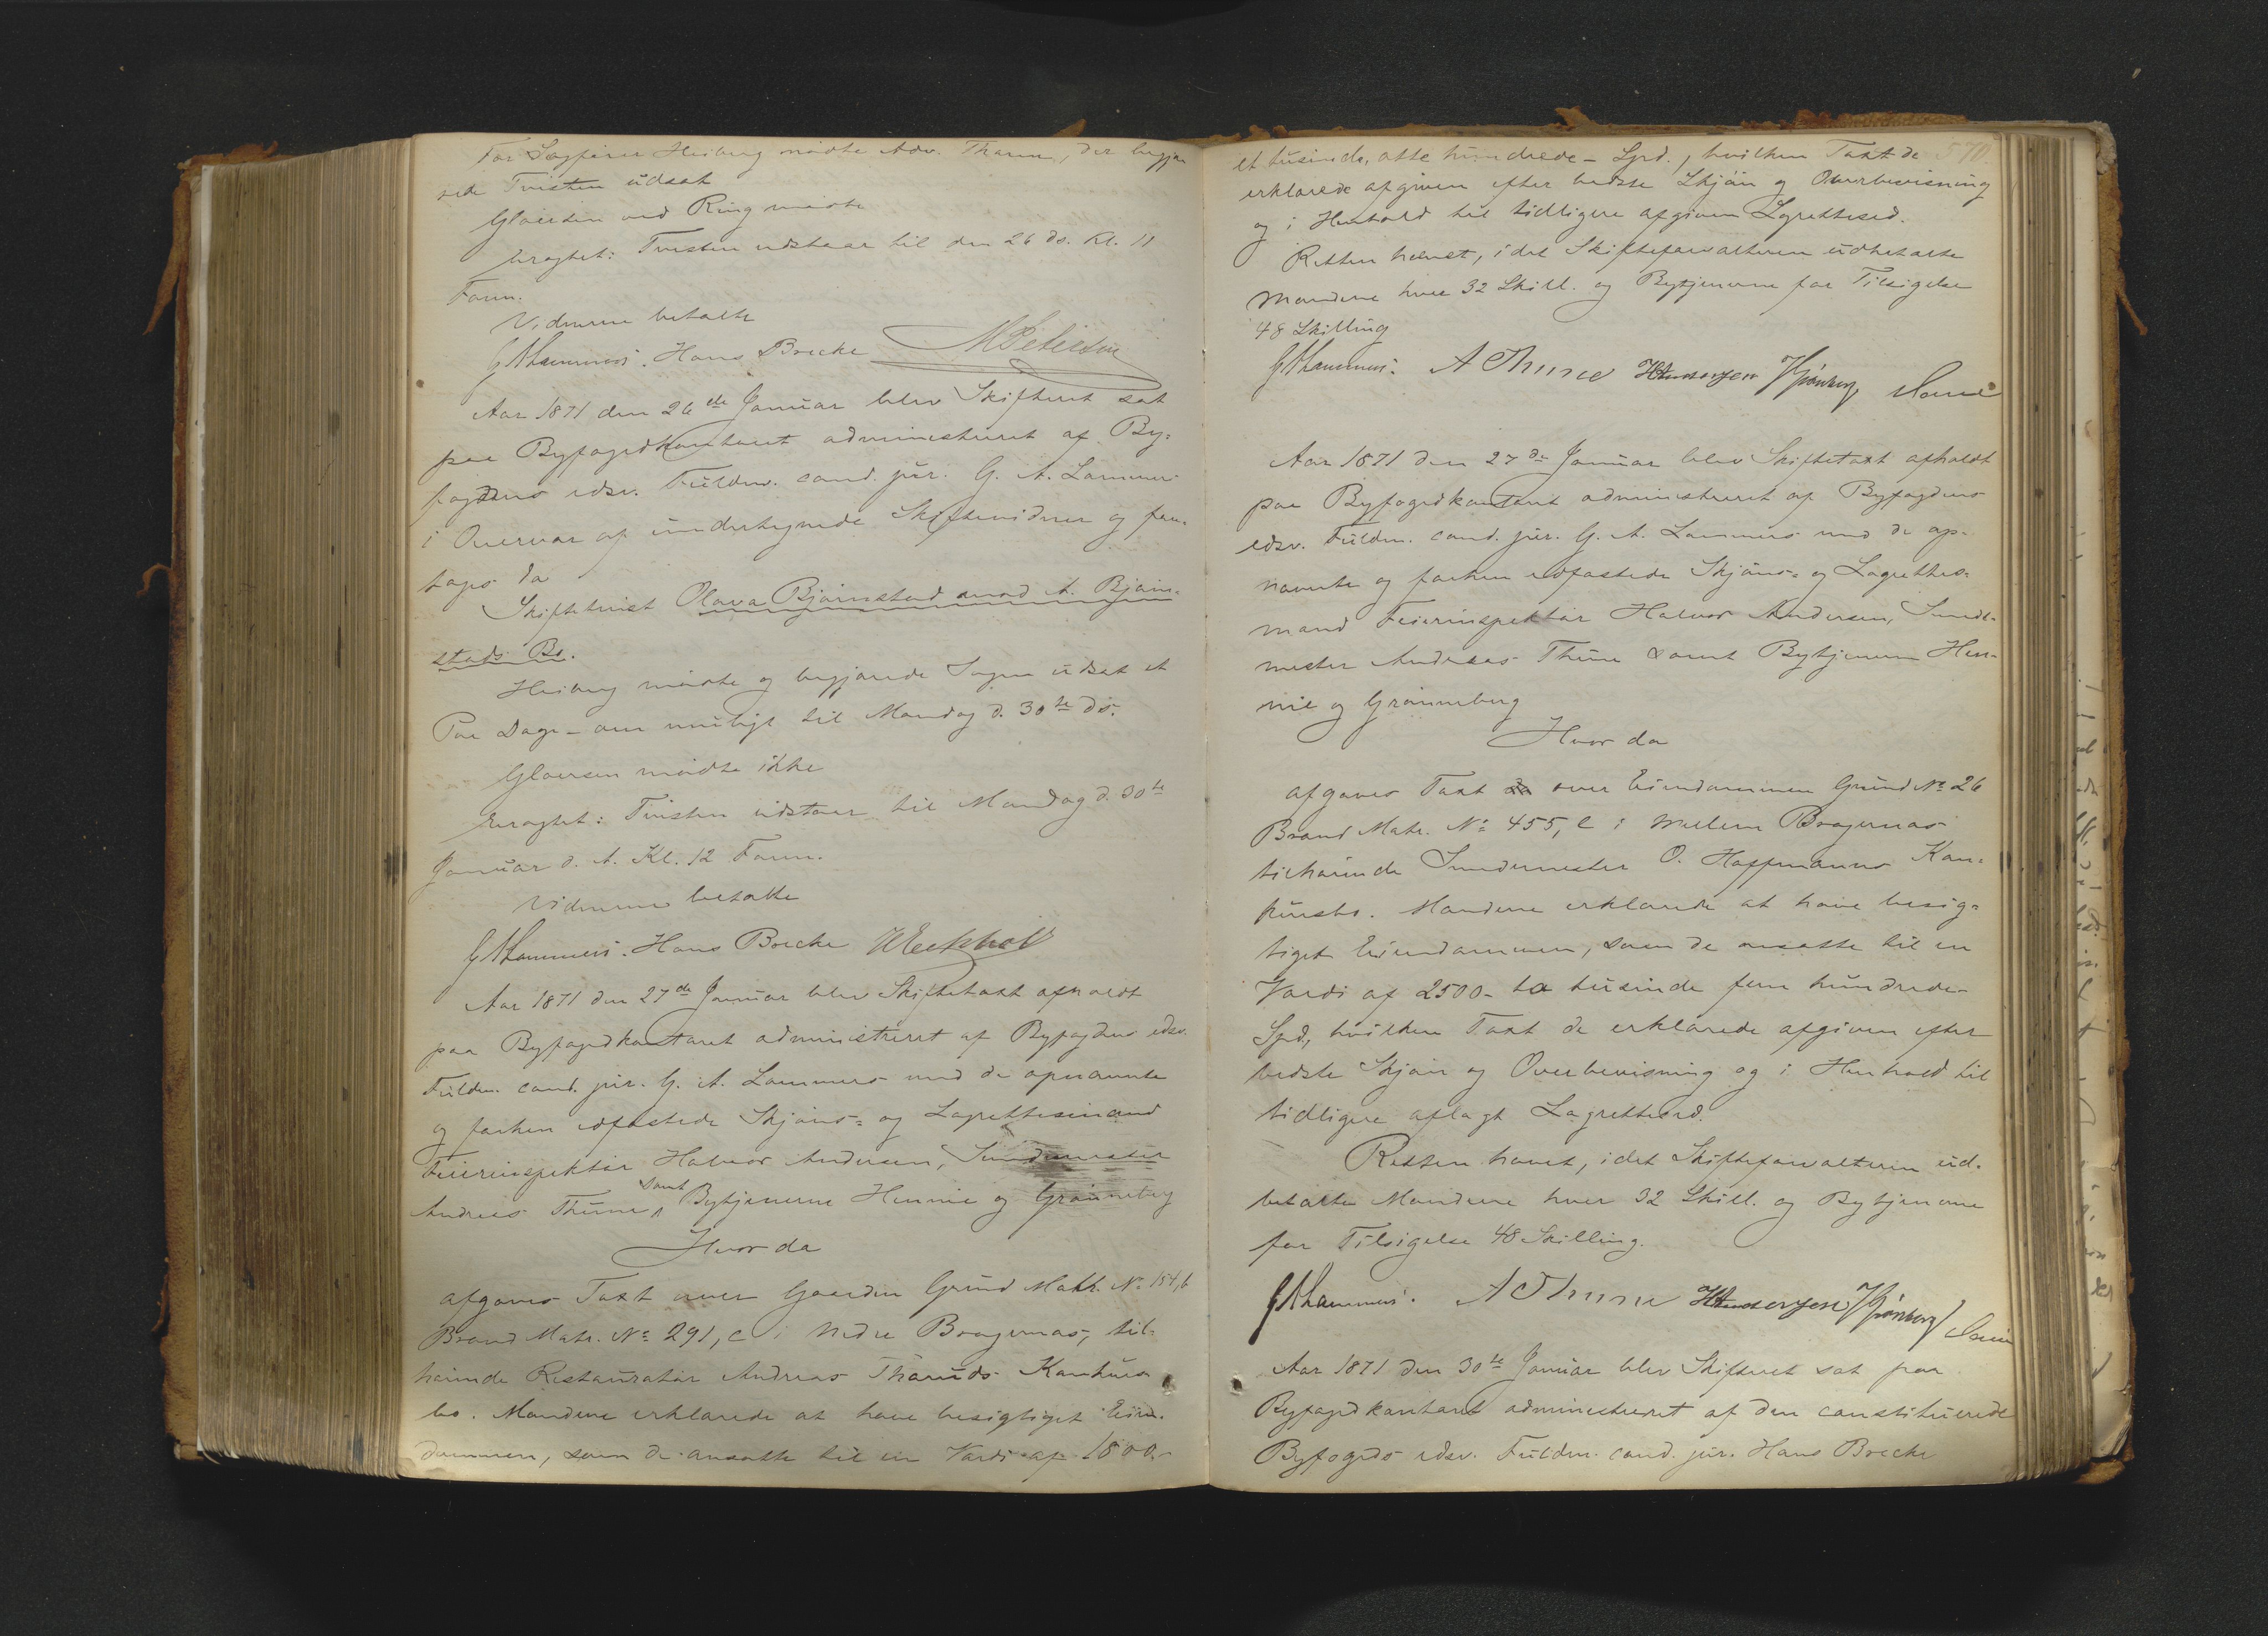 For Sagfører Heiberg mødte Adv. Thorne, der begjæ-
rede Tvisten udsat
Gløersen ved Ring mødte
Eragtet: Tvisten udstaar til den 26 ds. Kl. 11
Form.
Vidnerne betalte
G A Lammers. Hans Brecke
Aar 1871 den 26de Januar blev Skifteret sat
paa Byfogedkontoret administreret af By-
fogdens edsv. Fuldm. cand. jur. G. A. Lammers
i Overvær af undertegnede Skiftevidner og fore-
toges da
Skiftetvist Olava Bjørnstad mod A. Bjørn-
stads Bo.
Heiberg mødte og begjærede Sagen udsat et
Par Dage - om muligt til Mandag d. 30te ds.
Gløersen mødte ikke
Eragtet: Tvisten udstaar til Mandag d. 30te
Januar d. A. Kl. 12 Form.
Vidnerne betalte
G A Lammers. Hans Brecke
Aar 1871 den 27de Januar blev Skiftetaxt afholdt
paa Byfogedkontoret administreret af Byfogdens edsv.
Fuldm. cand. jur. G. A. Lammers med de opnævnte
og forhen edfæstede Skjøns- og Lagrettesmænd
Feierinspektør Halvor Andersen, Smedemester
Andreas Thune, samt Bytjenerne Hennie og Grønneberg
Hvor da
afgaves Taxt over Gaarden Grund Matr. No 154,b
Brand Matr. No 291, c i Nedre Bragernæs, til-
hørende Restauratør Andreas Thoruds Konkurs-
bo. Mændene erklærede at have besigtiget Eien-
dommen, som de ansatte til en Værdi af 1800.-
570.
et tusinde, otte hundrede - Spd., hvilken Taxt de
erklærede afgiven efter bedste Skjøn og Overbevisning
og i Henhold til tidligere afgiven Lagretteed.
Retten hævet, idet Skifteforvalteren udbetalte
Mændene hver 32 Skill. og Bytjenerne for Tilsigelse
48 Skilling
G A Lammers. A Thune H Andersen Grønberg Hennie
Aar 1871 den 27de Januar blev Skiftetaxt afholdt
paa Byfogedkontoret administreret af Byfogdens
edsv. Fuldm. cand. jur. G. A. Lammers med de op-
nævnte og forhen edfæstede Skjøns- og Lagrettes-
mænd Feierinspektør Halvor Andersen, Smede-
mester Andreas Thune samt Bytjenerne Hen-
nie og Grønneberg
Hvor da
afgaves Taxt da over Eiendommen Grund No 26
Brand Matr. No 455, c i Mellem Bragernæs
tilhørende Smedemester O. Hoffmanns Kon-
kursbo. Mændene erklærede at have besig-
tiget Eiendommen, som de ansatte til en
Værdi af 2500 - to tusinde fem hundrede -
Spd, hvilken Taxt de erklærede afgiven efter
bedste Skjøn og Overbevisning og i Henhold til
tidligere aflagt Lagretteed.
Retten hævet, idet Skifteforvalteren ud-
betalte Mændene hver 32 Skill. og Bytjenerne
for Tilsigelse 48 Skilling.
G A Lammers. A Thune H Andersen Grønberg Hennie
Aar 1871 den 30te Januar blev Skifteret sat paa
Byfogedkontoret administreret af den constituerede
Byfogeds edsv. Fuldm. cand. jur. Hans Brecke